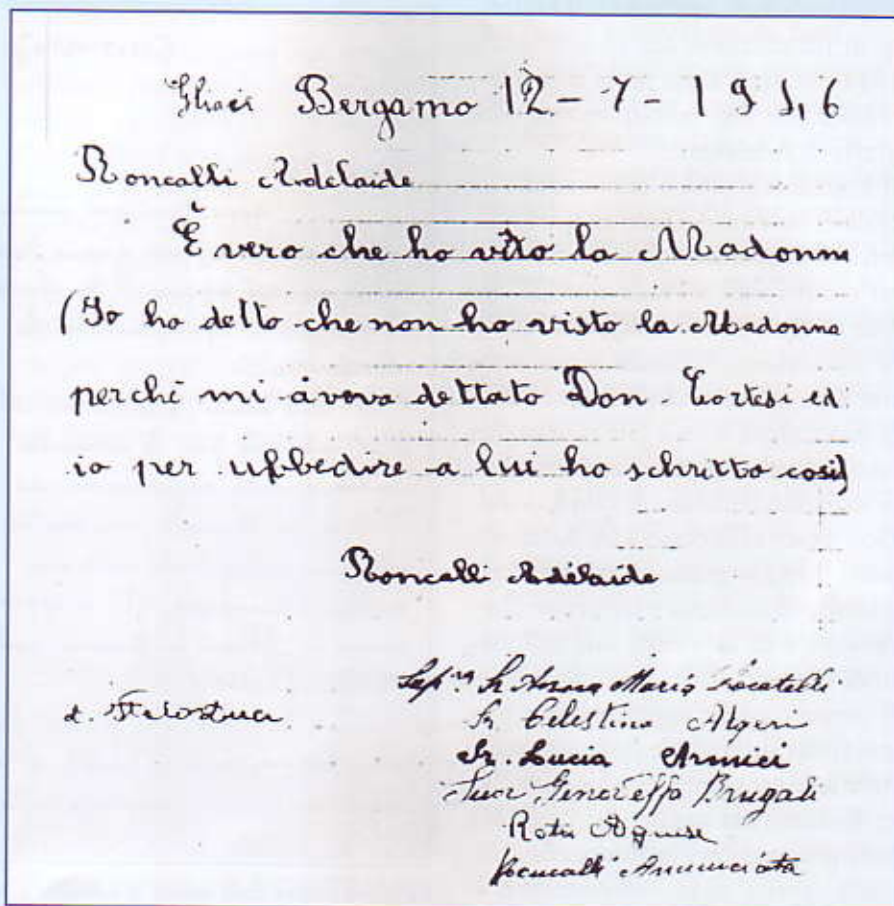 Ghiaie Bergamo 12-7-1946
Roncalli Adelaide
È vero che ho visto la Madonna
(Io ho detto che non ho visto la Madonna
perché mi aveva dettato Don Cortesi ed
io per ubbedire a lui ho schritto così)
Roncalli Adelaide
Sup.ra Sr Anna Maria Locatelli
Sr. Celestina Algeri
Sr. Lucia Armici
Suor Genoveffa Brugali
Rota Agnese
Roncalli Annunciata